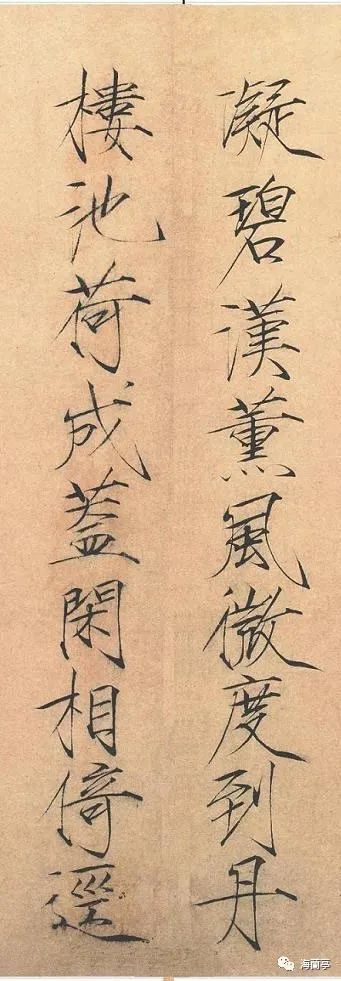 凝碧漢薰風微度到丹
樓池荷成蓋閑相倚逕
海蘭亭